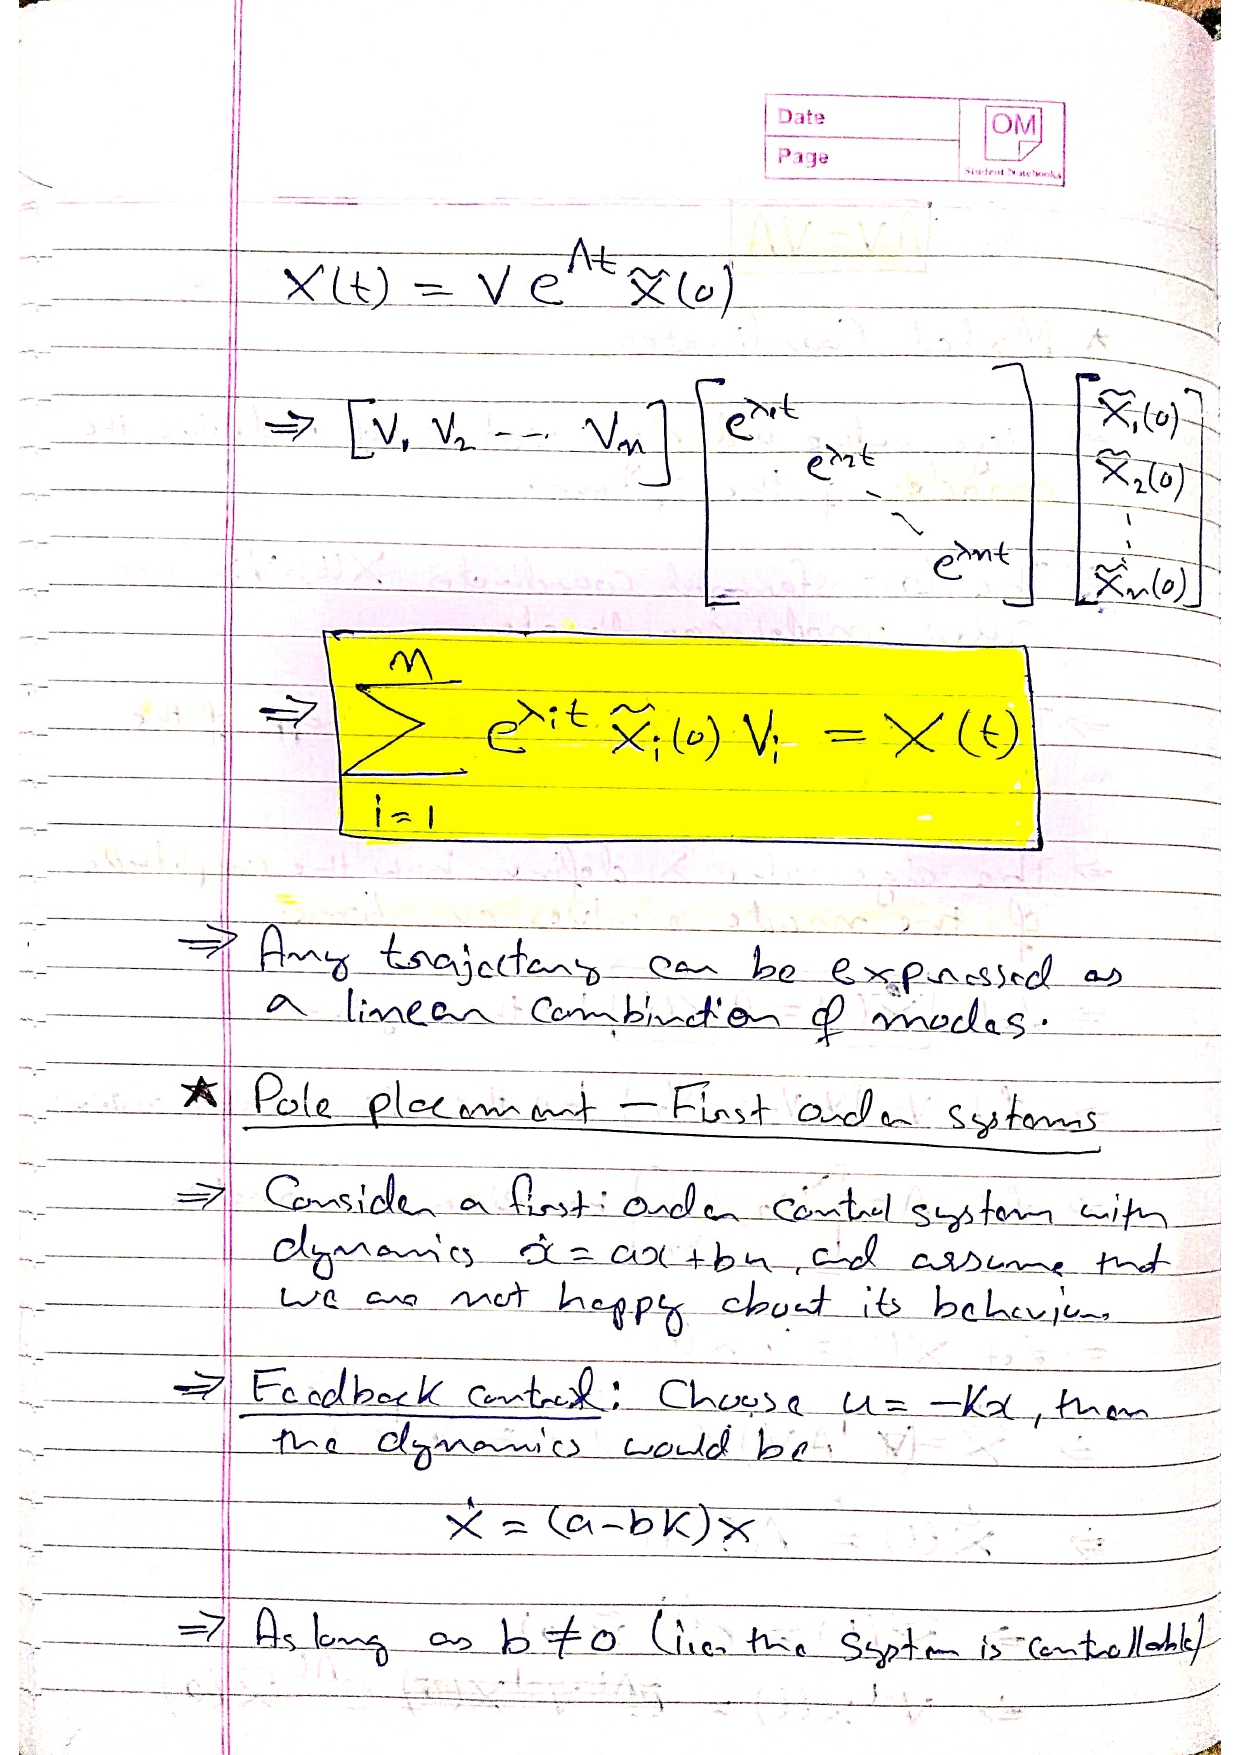 Date
Page
OM
Student Notebooks
X(t) = V e^Λt x̃(0)
⇒ [V₁ V₂ --- Vn] [e^λ₁t e^λ₂t ⋱ e^λnt] [x̃₁(0) x̃₂(0) ⋮ x̃n(0)]
⇒ n∑i=1 e^λit x̃i(0) Vi = X(t)
⇒ Any trajectory can be expressed as
a linear combination of modes.
★ Pole placement – First order systems
⇒ Consider a first order control system with
dynamics ẋ = ax + bu, and assume that
we are not happy about its behaviour.
⇒ Feedback control: Choose u = -Kx, then
the dynamics would be
ẋ = (a-bK)x
⇒ As long as b ≠ 0 (i.e. the system is controllable)